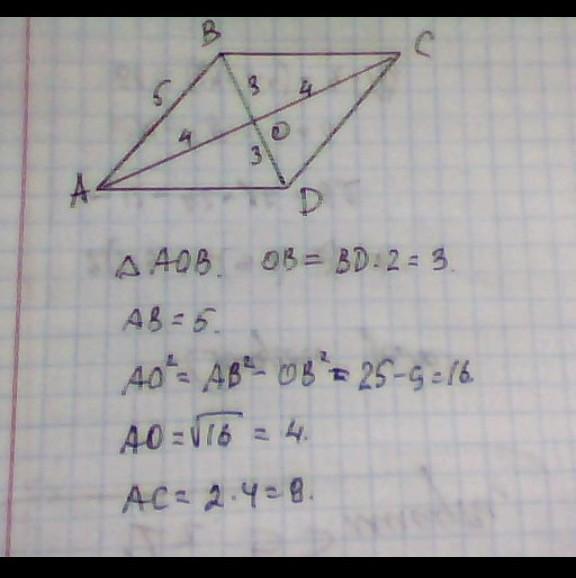 B C
5 3 4
4 O
3
A D
△ AOB. OB = BD:2 = 3.
AB = 5.
AO² = AB² - OB² = 25-9=16
AO = √16 = 4.
AC = 2·4=8.